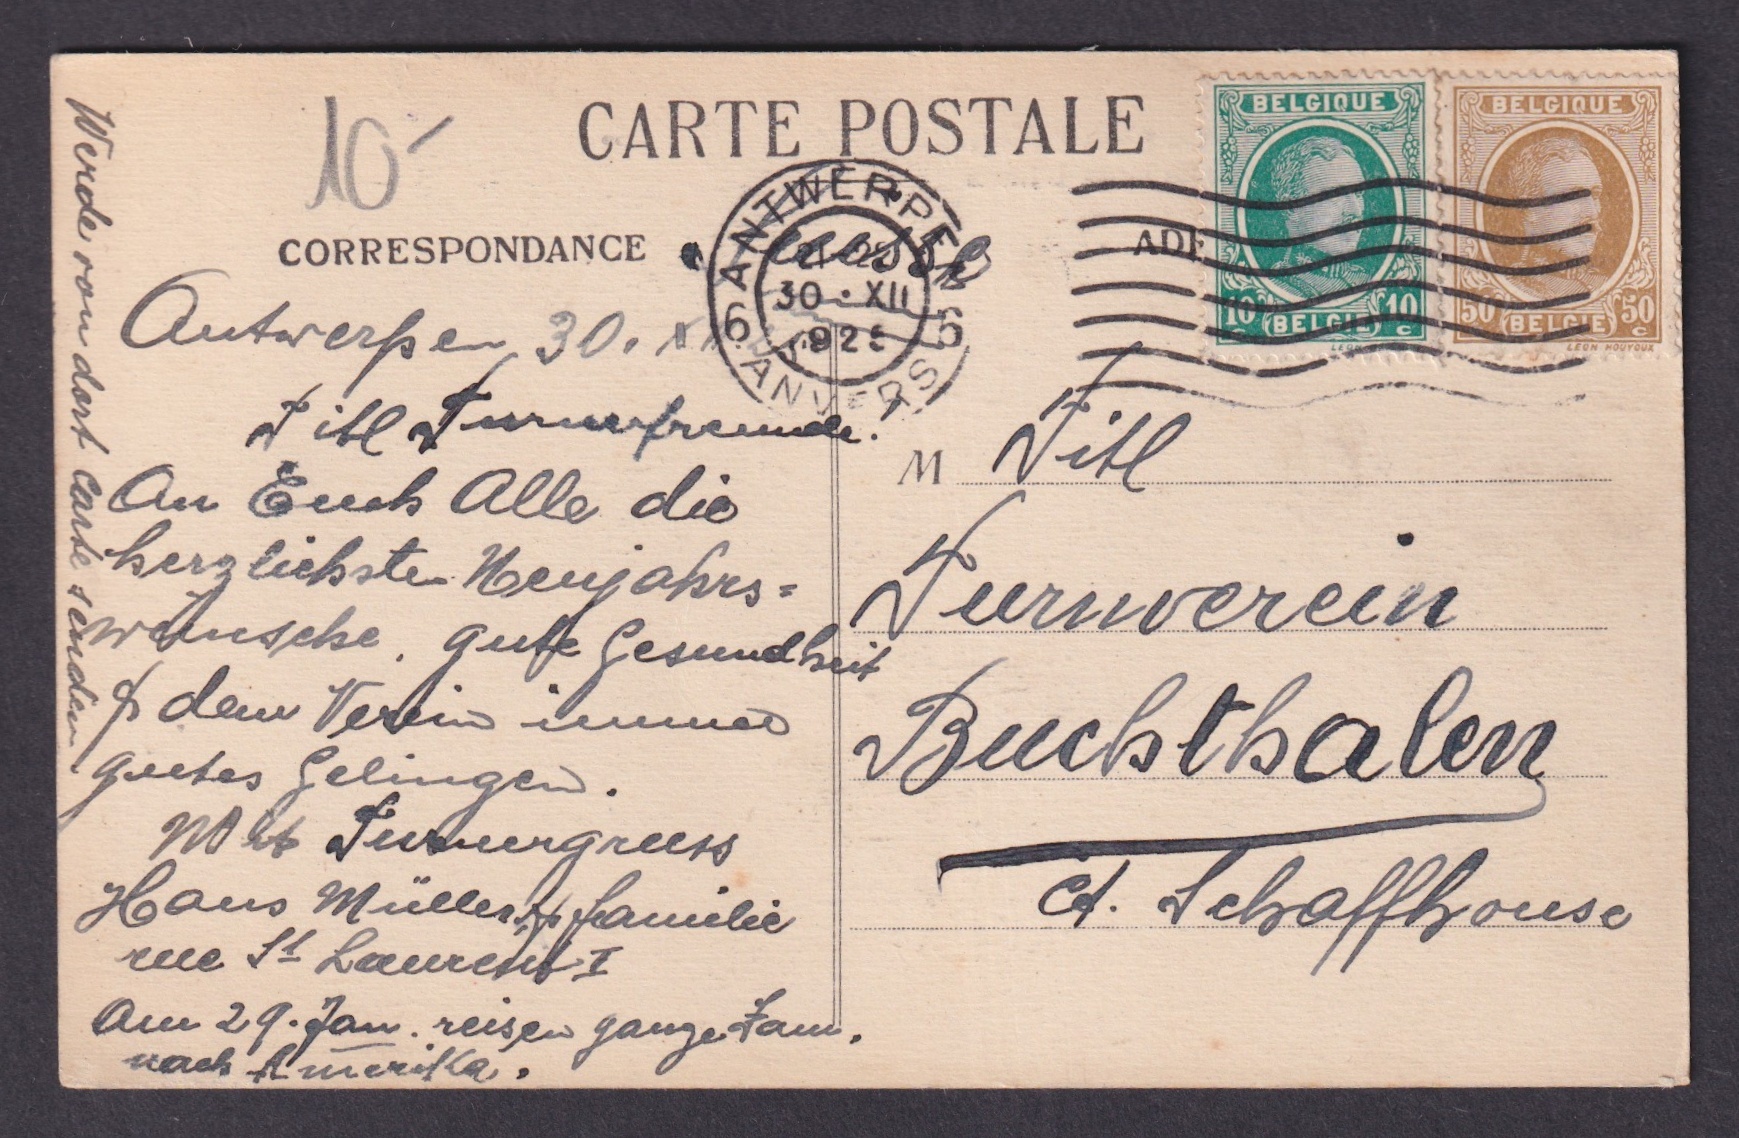 10-
CARTE POSTALE
CORRESPONDANCE
ADR
BELGIQUE
10 c BELGIË 10 c
BELGIQUE
50 c BELGIË 50 c
LEON HOUYOUX
ANTWERPEN
30 · XII
6 6
ANVERS
Antwerpen 30.
Titl Turnerfreunde!
An Euch Alle die
herzlichsten Neujahrs=
wünsche, gute Gesundheit
& dem Verein immer
gutes Gelingen.
Mit Turnergruss
Hans Müller & familie
rue St Laurent I
Am 29. Jan. reisen ganze Fam.
nach Amerika.
Werde von dort Carte senden
M Titl
Turnverein
Buchthalen
Ct. Schaffhouse